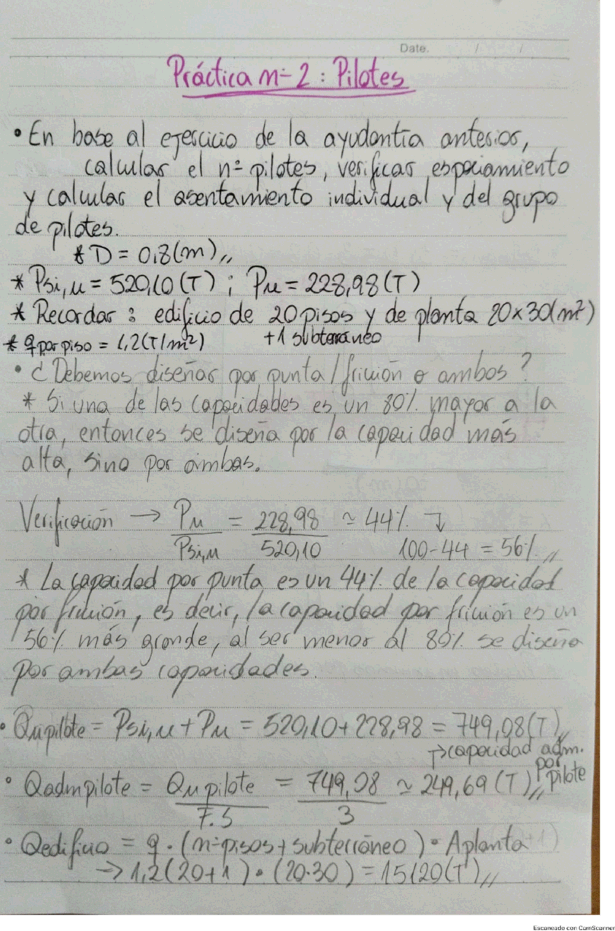 Date. / /
Práctica nº 2: Pilotes
• En base al ejercicio de la ayudantía anterior,
calcular el nº pilotes, verificar espaciamiento
y calcular el asentamiento individual y del grupo
de pilotes.
* D = 0,8(m),,
* Psi,u = 520,10(T) ; Pu = 228,98(T)
* Recordar: edificio de 20 pisos y de planta 20x30(m²)
+1 subterráneo
* q por piso = 1,2(T/m²)
• ¿Debemos diseñar por punta/fricción o ambos?
* Si una de las capacidades es un 80% mayor a la
otra, entonces se diseña por la capacidad más
alta, sino por ambas.
Verificación → Pu / Psi,u = 228,98 / 520,10 ≃ 44% ↴
100-44 = 56%,,
* La capacidad por punta es un 44% de la capacidad
por fricción, es decir, la capacidad por fricción es un
56% más grande, al ser menor al 80% se diseña
por ambas capacidades.
• Qu pilote = Psi,u + Pu = 520,10 + 228,98 = 749,08(T),,
↱capacidad adm.
por
pilote
• Qadm pilote = Qu pilote / F.S = 749,08 / 3 ≃ 249,69 (T),,
• Qedificio = q · (nº pisos + subterráneo) · A planta
→ 1,2(20+1) · (20·30) = 15120(T),,
Escaneado con CamScanner